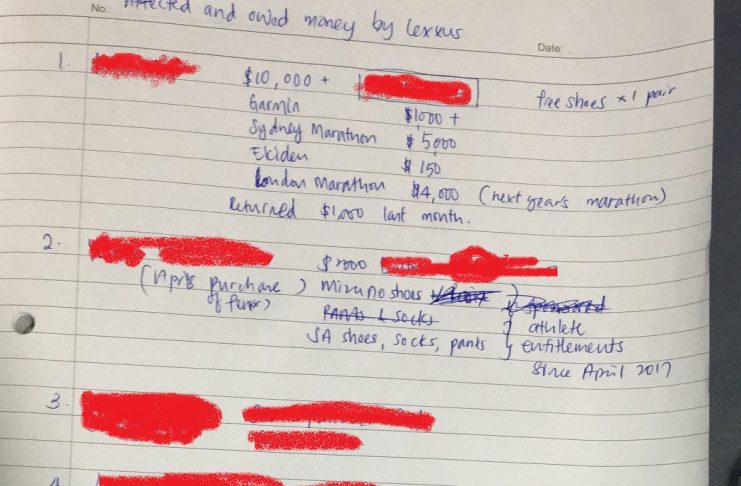 No.
affected and owed money by lexxus
Date:
1. $10,000 + free shoes x 1 pair
Garmin $1000 +
Sydney Marathon $5000
Ekiden $150
London Marathon $4,000 (next years marathon)
Returned $1,000 last month.
2. $2000
(April purchase ) Mizuno shoes
PANTS & SOCKS athlete
SA shoes, socks, pants entitlements
since April 2017
3.
4